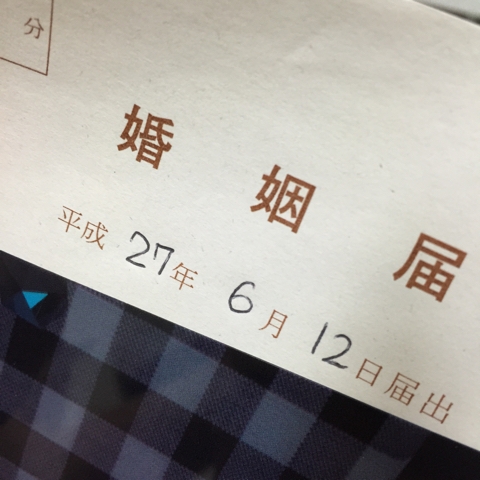 分
婚姻届
平成27年6月12日届出